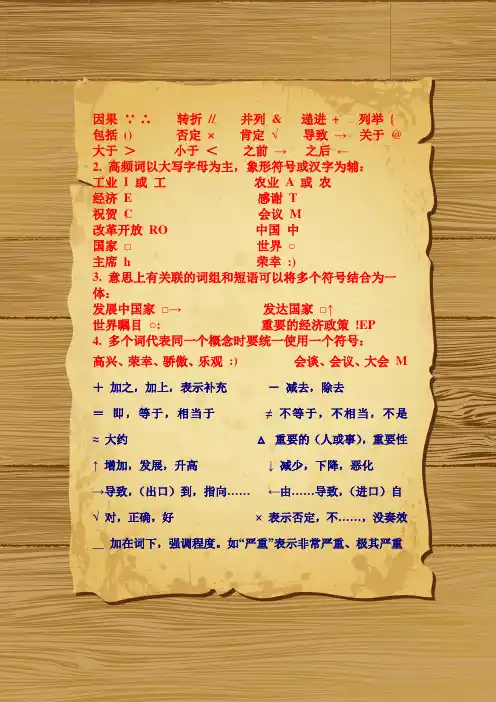 因果 ∵ ∴ 转折 // 并列 & 递进 + 列举 {
包括 () 否定 × 肯定 √ 导致 → 关于 @
大于 ＞ 小于 ＜ 之前 → 之后 ←
2. 高频词以大写字母为主，象形符号或汉字为辅：
工业 I 或 工 农业 A 或 农
经济 E 感谢 T
祝贺 C 会议 M
改革开放 RO 中国 中
国家 □ 世界 ○
主席 h 荣幸 :)
3. 意思上有关联的词组和短语可以将多个符号结合为一
体：
发展中国家 □→ 发达国家 □↑
世界瞩目 ○: 重要的经济政策 !EP
4. 多个词代表同一个概念时要统一使用一个符号：
高兴、荣幸、骄傲、乐观 :) 会谈、会议、大会 M
＋ 加之，加上，表示补充 － 减去，除去
＝ 即，等于，相当于 ≠ 不等于，不相当，不是
≈ 大约 △ 重要的（人或事），重要性
↑ 增加，发展，升高 ↓ 减少，下降，恶化
→导致，（出口）到，指向…… ←由……导致，（进口）自
√ 对，正确，好 × 表示否定，不……，没奏效
__ 加在词下，强调程度。如“严重”表示非常严重、极其严重